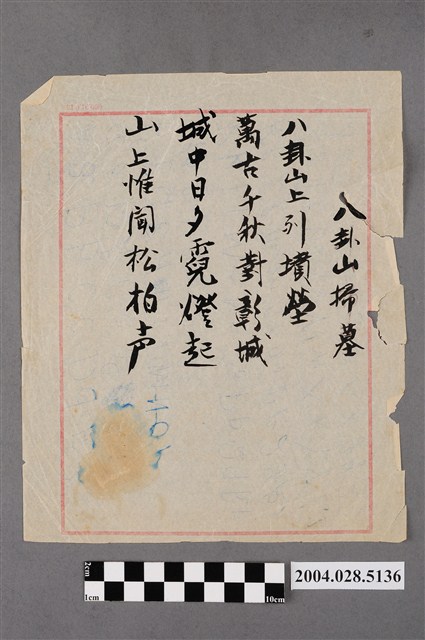 八卦山掃墓
八卦山上列墳塋
萬古千秋對彰城
城中日夕霓燈起
山上惟聞松柏声
2cm
1cm
10cm
2004.028.5136